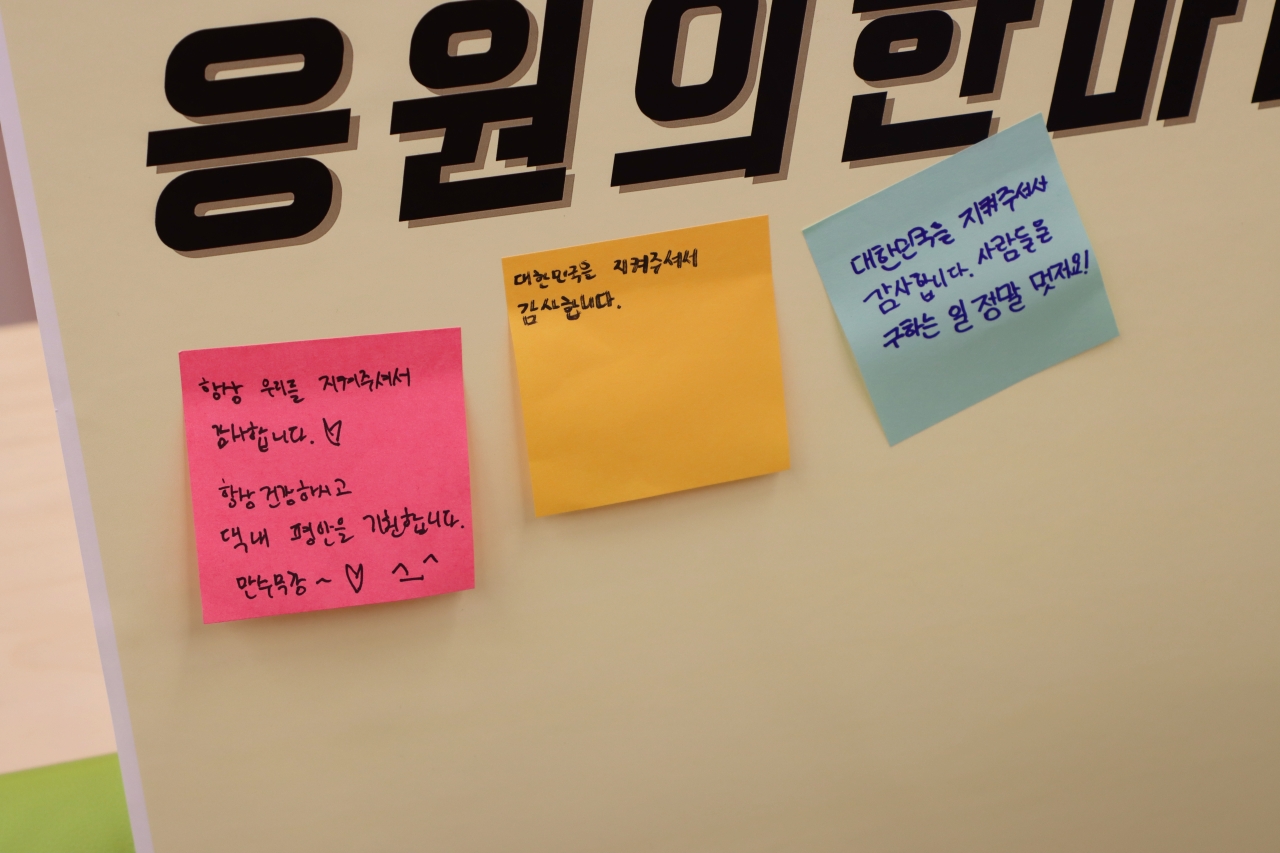 응원의한마
항상 우리를 지켜주셔서
감사합니다. ♡
항상 건강하시고
댁내 평안을 기원합니다.
만수무강 ~ ♡ ^_^
대한민국을 지켜주셔서
감사합니다.
대한민국을 지켜주셔서
감사합니다. 사람들을
구하는 일 정말 멋져요!